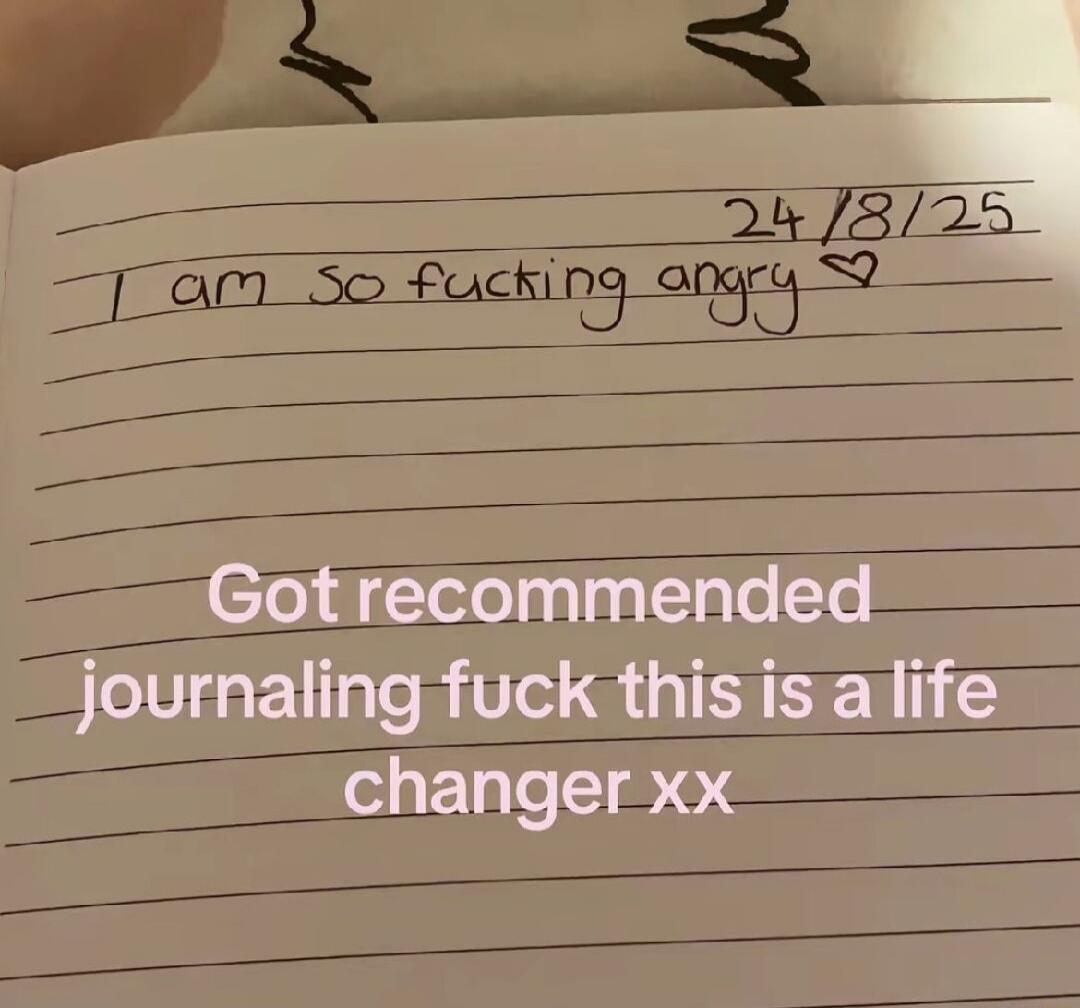 24/8/25
I am so fucking angry ♡
Got recommended
journaling fuck this is a life
changer xx